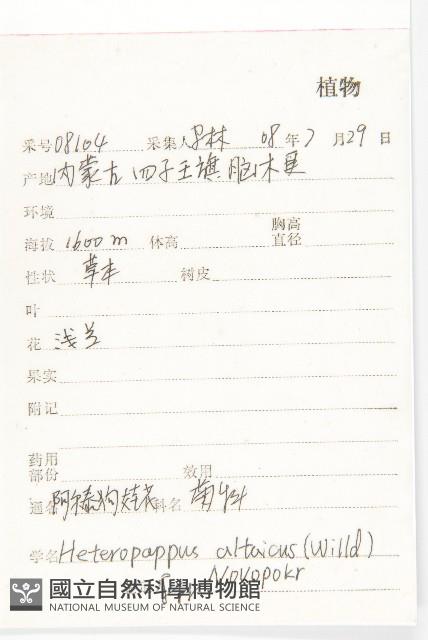 植物
采号 08104 采集人 林 08 年 7 月 29 日
产地 内蒙古 四子王旗 脑木更
环境
海拔 1600 m 体高 胸高直径
性状 草本 树皮
叶
花 浅兰
果实
附记
药用部份 效用
通名 阿尔泰狗娃花 科名 菊科
学名 Heteropappus altaicus (Willd)
Novopokr
國立自然科學博物館
NATIONAL MUSEUM OF NATURAL SCIENCE